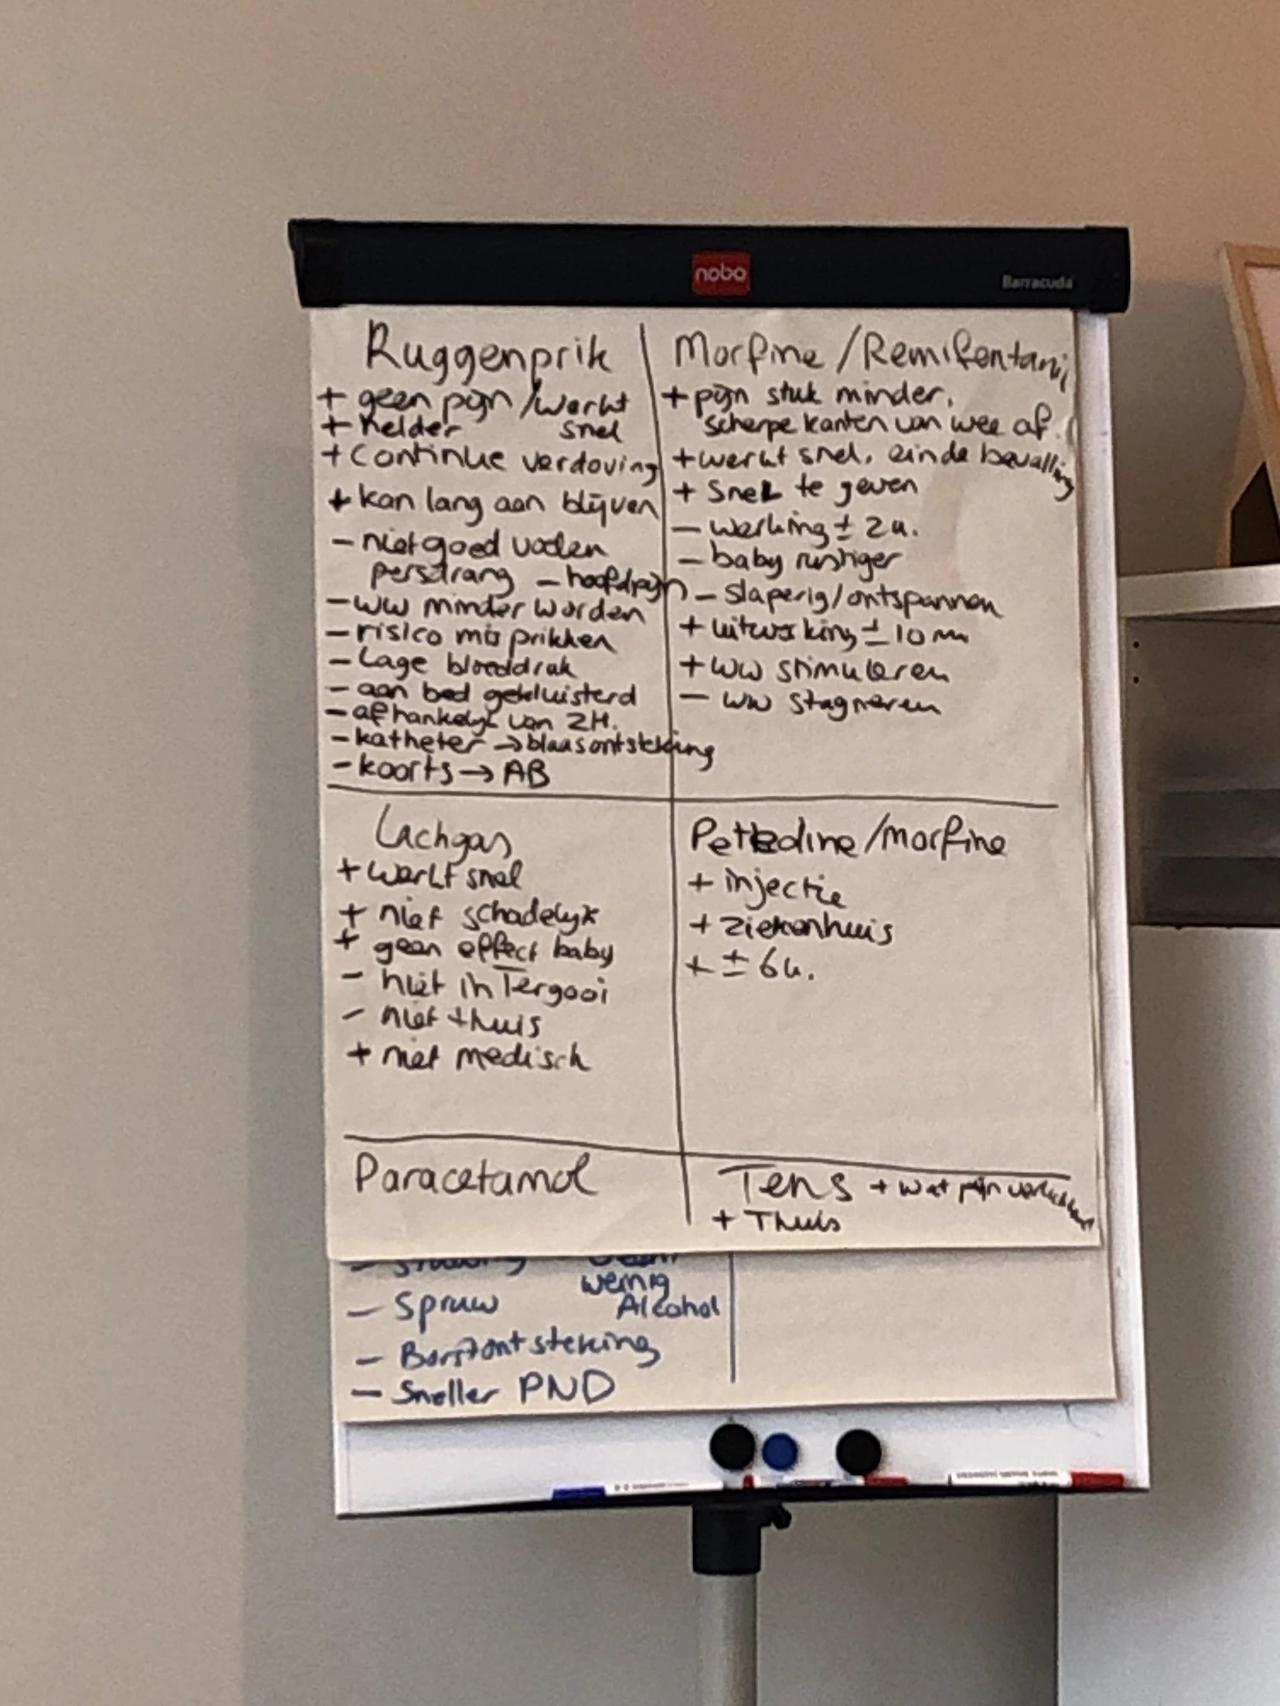 nobo
Barracuda
Ruggenprik
+ geen pijn / werkt
+ helder snel
+ Continue verdoving
+ kan lang aan blijven
- niet goed voelen
persdrang - hoofdpijn
- ww minder worden
- risico mis prikken
- Lage bloeddruk
- aan bed gekluisterd
- afhankelijk van ZH.
- katheter → blaasontsteking
- koorts → AB
Morfine / Remifentanil
+ pijn stuk minder,
scherpe kanten van wee af.
+ werkt snel, einde bevalling
+ snel te geven
- werking ± 2u.
- baby rustiger
- slaperig/ontspannen
+ uitwerking ± 10 m
+ ww stimuleren
- ww stagneren
Lachgas
+ werkt snel
+ niet schadelijk
+ geen effect baby
- niet in Tergooi
- niet thuis
+ niet medisch
Pethedine/morfine
+ injectie
+ ziekenhuis
+ ± 6u.
Paracetamol
Tens + wat pijn
+ Thuis
weinig
- Spruw Alcohol
- Borstontsteking
- Sneller PND